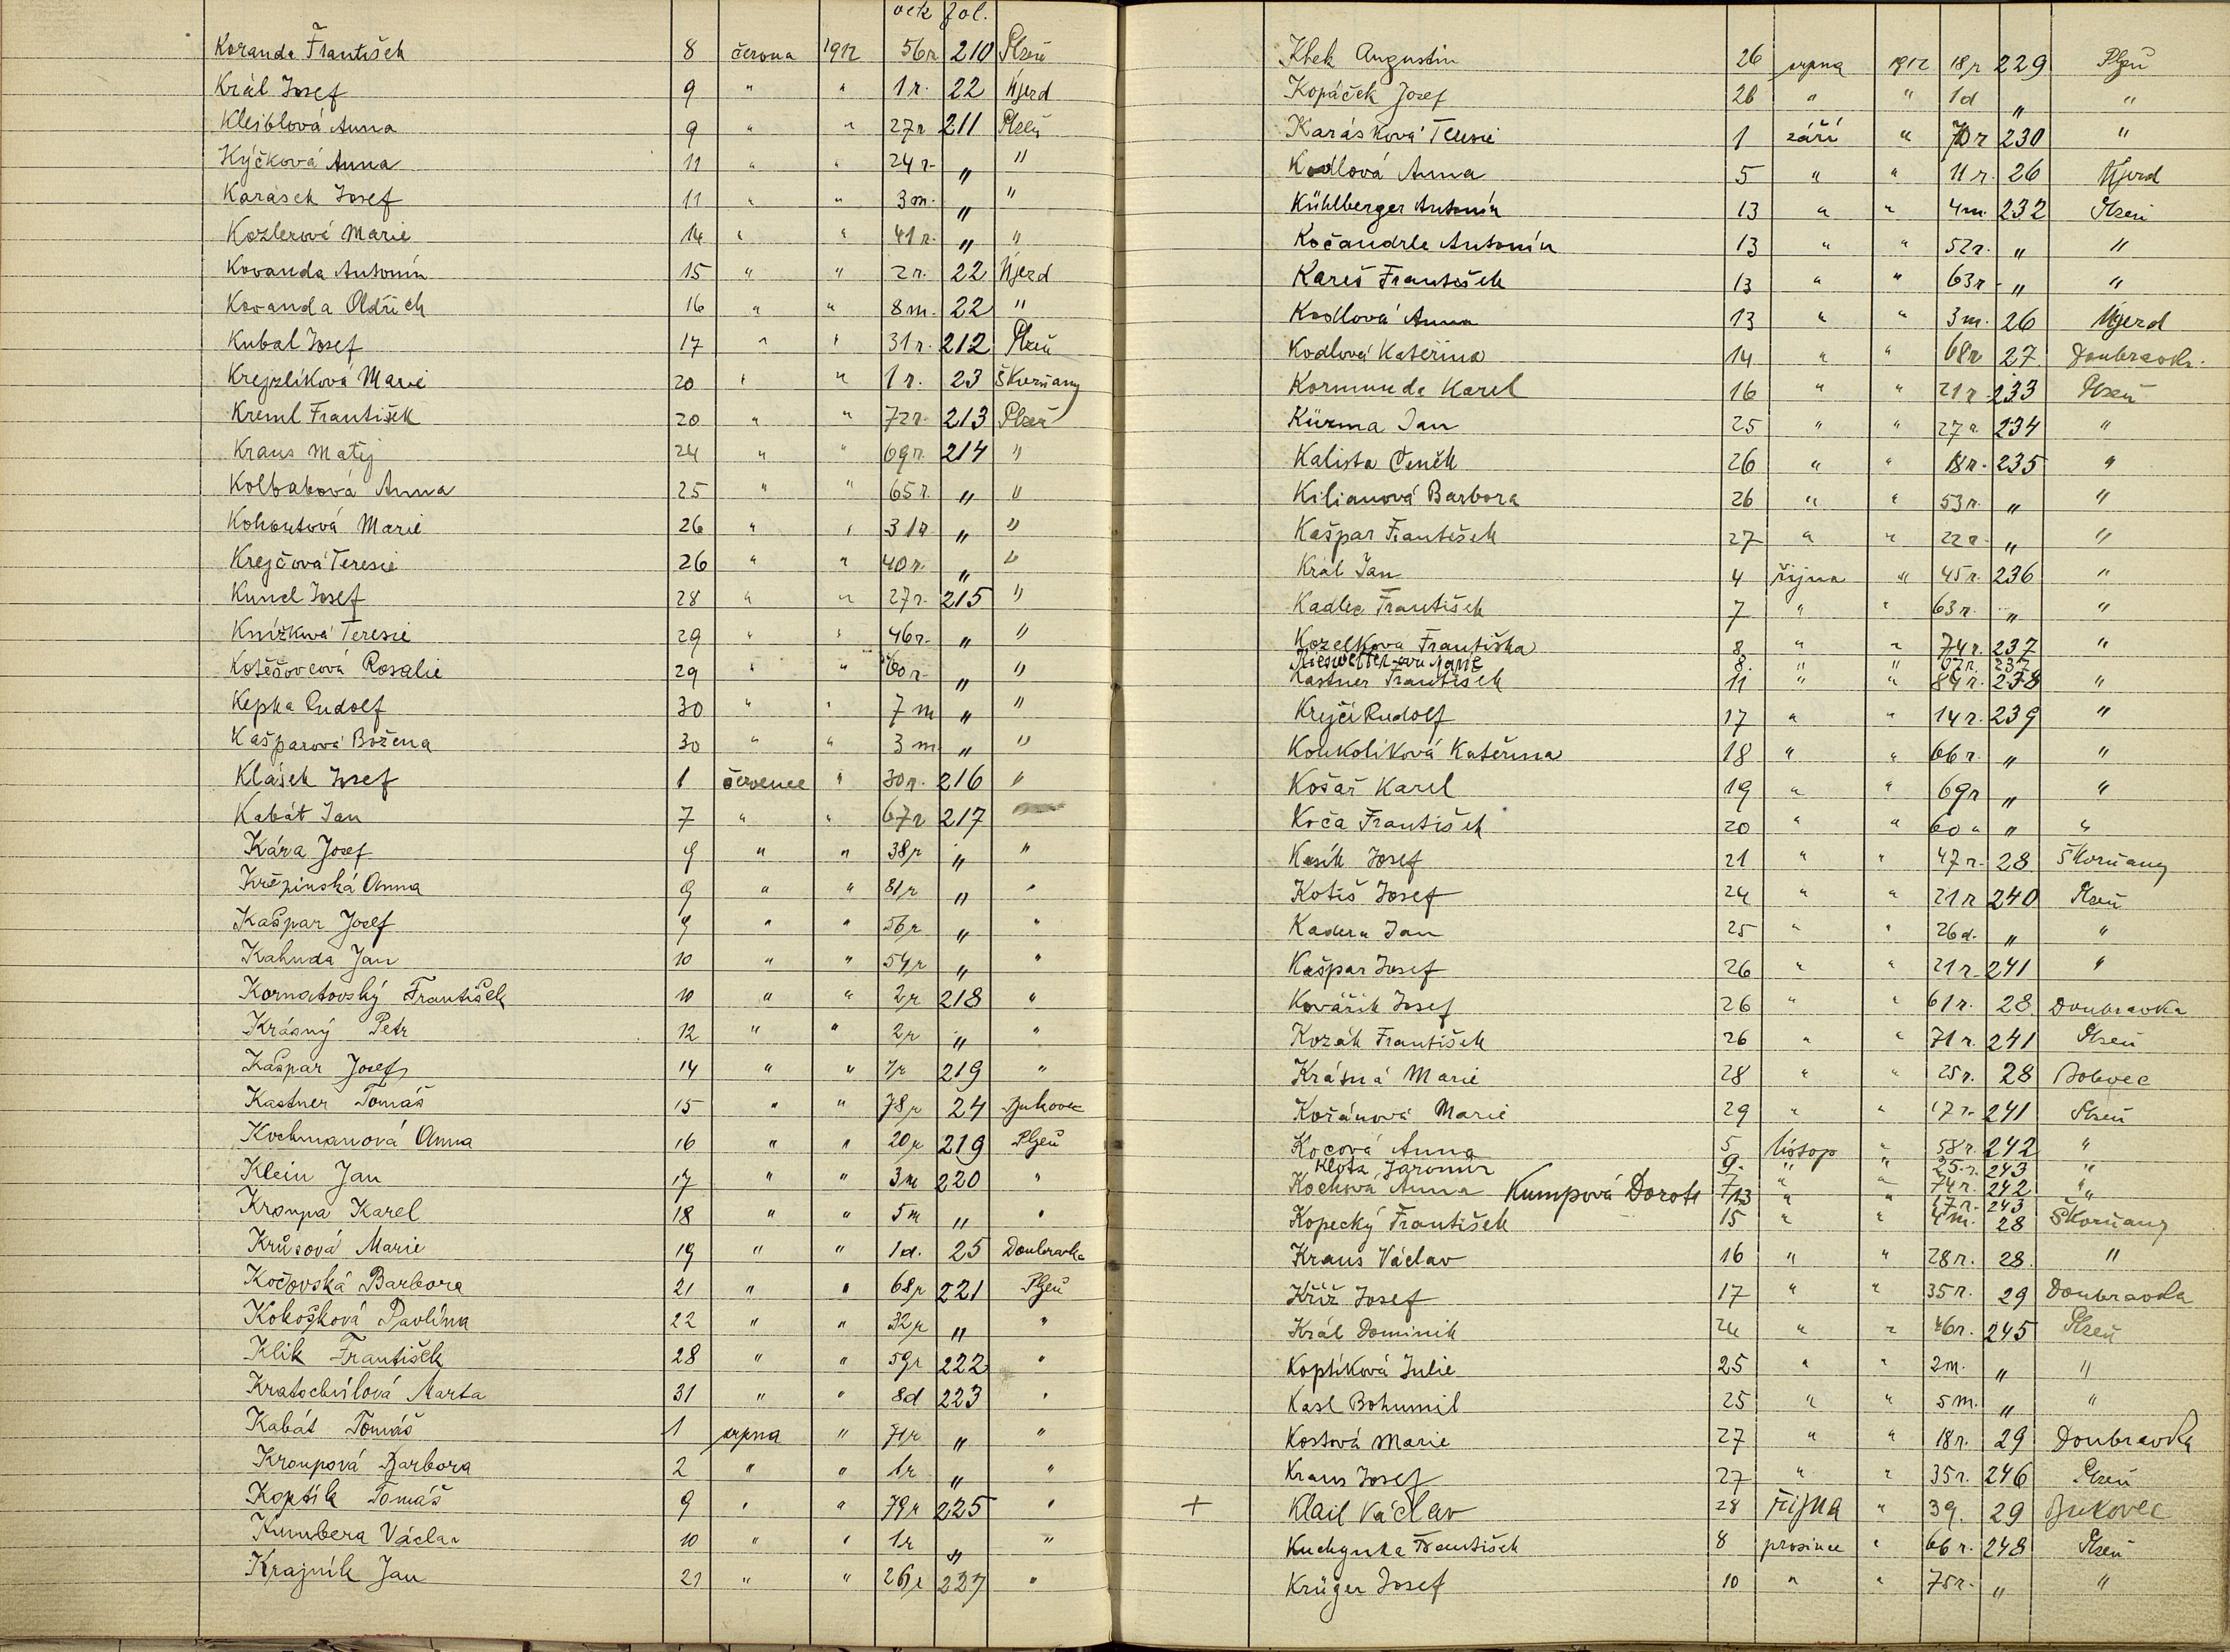 věk fol.
Koranda František 8 června 1912 56r 210 Plzeň
Král Josef 9 " " 1r. 22 Újezd
Kleiblová Anna 9 " " 27r 211 Plzeň
Kýčková Anna 11 " " 24r. " "
Karásek Josef 11 " " 3m. " "
Kozlerová Marie 14 " " 41r. " "
Kovanda Antonín 15 " " 2r. 22 Újezd
Kovanda Oldřich 16 " " 8m. 22 "
Kubal Josef 17 " " 31r. 212 Plzeň
Krejzlíková Marie 20 " " 1r. 23 Škvrňany
Kreml František 20 " " 72r. 213 Plzeň
Kraus Matěj 24 " " 69r. 214 "
Kolbabová Anna 25 " " 65r. " "
Kohoutová Marie 26 " " 31r " "
Krejčová Teresie 26 " " 40r. " "
Kuncl Josef 28 " " 27r. 215 "
Knížková Teresie 29 " " 46r. " "
Kotěšovcová Rosalie 29 " " 60r. " "
Kepka Rudolf 30 " " 7m " "
Kašparová Božena 30 " " 3m " "
Klásek Josef 1 července " 30r. 216 "
Kabát Jan 7 " " 67r 217
Kára Josef 9 " " 38r " "
Křepinská Anna 9 " " 81r " "
Kašpar Josef 9 " " 56r " "
Kahuda Jan 10 " " 54r " "
Kornatovský František 10 " " 2r 218 "
Krásný Petr 12 " " 2r " "
Kašpar Josef 14 " " 219 "
Kastner Tomáš 15 " " 78r 24 Bukovec
Kochmanová Anna 16 " " 20r 219 Plzeň
Klein Jan 17 " " 3m 220 "
Kroupa Karel 18 " " 5m " "
Krůsová Marie 19 " " 1d. 25 Doubravka
Kočovská Barbora 21 " " 68r 221 Plzeň
Kokošková Pavlína 22 " " 32r " "
Klik František 28 " " 59r 222 "
Kratochvílová Marta 31 " " 8d 223 "
Kabát Tomáš 1 srpna " 71r " "
Kroupová Barbora 2 " " 1r " "
Koptík Tomáš 9 " " 79r 225 "
Kumbera Václav 10 " " 1r " "
Krajník Jan 21 " " 26r 227 "
Kbek Augustin 26 srpna 1912 18r 229 Plzeň
Kopáček Josef 26 " " 1d " "
Karásková Teresie 1 září " 70r 230 "
Kodlová Anna 5 " " 11r. 26 Újezd
Kühlberger Antonín 13 " " 4m. 232 Plzeň
Kočandrle Antonín 13 " " 52r. " "
Kareš František 13 " " 63r " "
Kodlová Anna 13 " " 3m. 26 Újezd
Kodlová Kateřina 14 " " 68r 27 Doubravka.
Kormunda Karel 16 " " 21r 233 Plzeň
Kürma Jan 25 " " 27r. 234 "
Kalista Čeněk 26 " " 18r. 235 "
Kilianová Barbora 26 " " 53r. " "
Kašpar František 27 " " 22r. " "
Král Jan 4 října " 45r. 236 "
Kadlec František 7 " " 63r. " "
Kozelková Františka 8 " " 74r. 237 "
Marie 8. " " 67r. 237
Kastner František 11 " " 84r. 238 "
Krejčí Rudolf 17 " " 14r. 239 "
Koukolíková Kateřina 18 " " 66r. " "
Košař Karel 19 " " 69r " "
Koča František 20 " " 60r " "
Kasík Josef 21 " " 47r. 28 Škvrňany
Kotiš Josef 24 " " 21r 240 Plzeň
Kadera Jan 25 " " 26d. " "
Kašpar Josef 26 " " 21r. 241 "
Kovářík Josef 26 " " 61r. 28 Doubravka
Kozák František 26 " " 71r. 241 Plzeň
Krásná Marie 28 " " 25r. 28 Bolevec
Kořánová Marie 29 " " 17r. 241 Plzeň
Kocová Anna 5 listop " 58r. 242 "
Klota Jaromír 9. " " 25.r. 243 "
Kochová Anna 7 " " 74r. 242 "
Kumpová Dorota 13 " " 17r. 243 "
Kopecký František 15 " " 4m. 28 Škvrňany
Kraus Václav 16 " " 28r. 28. "
Kříž Josef 17 " " 35r. 29 Doubravka
Král Dominik 24 " " 46r. 245 Plzeň
Koptíková Julie 25 " " 2m. " "
Kasl Bohumil 25 " " 5m. " "
Kostová Marie 27 " " 18r. 29 Doubravka
Kraus Josef 27 " " 35r. 246 Plzeň
+ Klail Václav 28 října " 39. 29 Bukovec
Kuchynka František 8 prosince " 66r. 248 Plzeň
Krüger Josef 10 " " 75r. " "